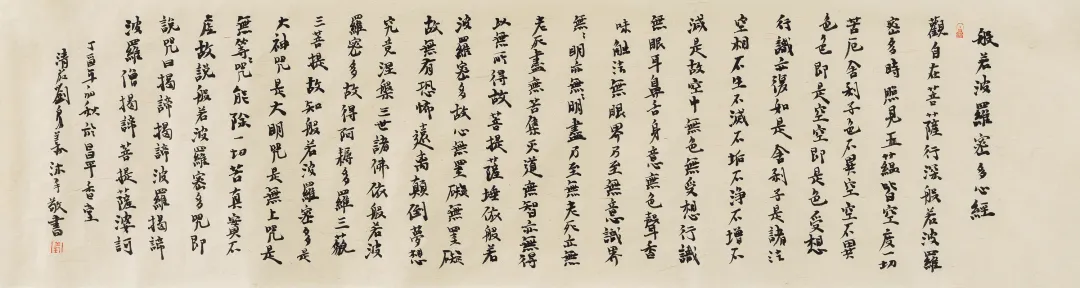 般若波羅密多心經
觀自在菩薩行深般若波羅
密多時照見五蘊皆空度一切
苦厄舍利子色不異空空不異
色色即是空空即是色受想
行識亦復如是舍利子是諸法
空相不生不滅不垢不淨不增不
減是故空中無色無受想行識
無眼耳鼻舌身意無色聲香
味触法無眼界乃至無意識界
無〻明亦無〻明盡乃至無老死亦無
老死盡無苦集灭道無智亦無得
以無所得故菩提薩埵依般若
波羅密多故心無罣礙無罣礙
故無有恐怖遠离顛倒夢想
究竟涅槃三世諸佛依般若波
羅密多故得阿耨多羅三藐
三菩提故知般若波羅密多是
大神咒是大明咒是無上咒是
無等〻咒能除一切苦真實不
虛故說般若波羅密多咒即
說咒曰揭諦揭諦波羅揭諦
波羅僧揭諦菩提薩婆訶
丁酉年初秋於昌平堂
劉義沐手敬書